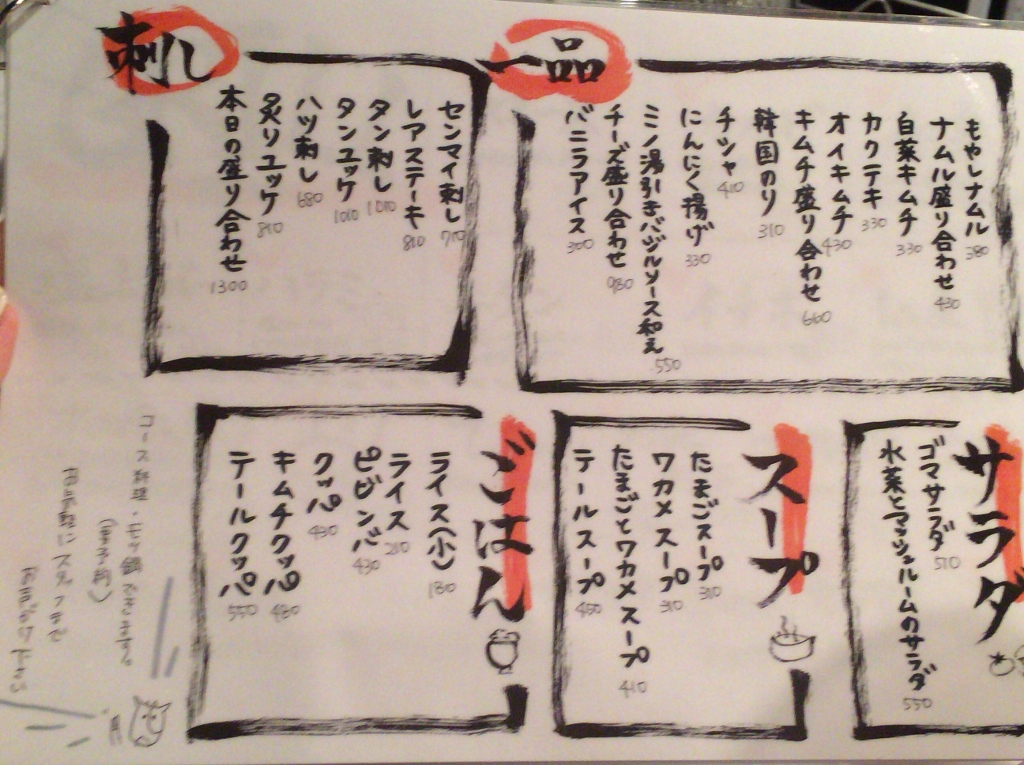 一品
もやしナムル 380
ナムル盛り合わせ 430
白菜キムチ 330
カクテキ 330
オイキムチ 430
キムチ盛り合わせ 660
韓国のり 310
チシャ 410
にんにく揚げ 330
ミノ湯引きバジルソース和え 550
チーズ盛り合わせ 980
バニラアイス 300
刺し
センマイ刺し 710
レアステーキ 810
タン刺し 1010
タンユッケ 1010
ハツ刺し 680
炙りユッケ 810
本日の盛り合わせ 1300
サラダ
ゴマサラダ 510
水菜とマッシュルームのサラダ 550
スープ
たまごスープ 310
ワカメスープ 310
たまごとワカメスープ 410
テールスープ 450
ごはん
ライス(小) 180
ライス 210
ビビンバ 430
クッパ 430
キムチクッパ 480
テールクッパ 550
コース料理・モツ鍋できます。
(要予約)
お気軽にスタッフまで